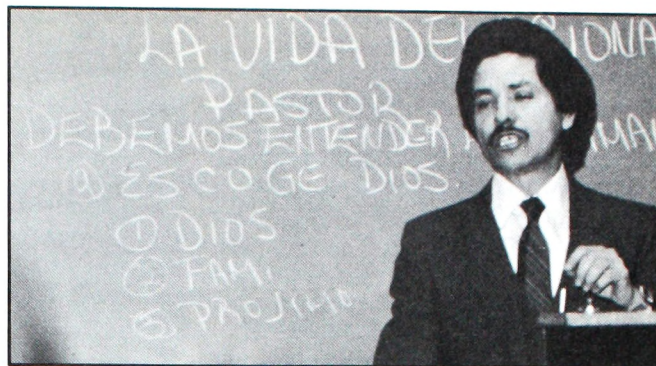 LA VIDA DE
PASTOR
DEBEMOS ENTENDER
a) ESCOGE DIOS.
① DIOS
② FAM.
③ PROJIMO